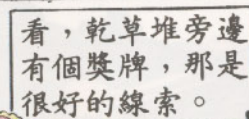 看，乾草堆旁邊
有個獎牌，那是
很好的線索。